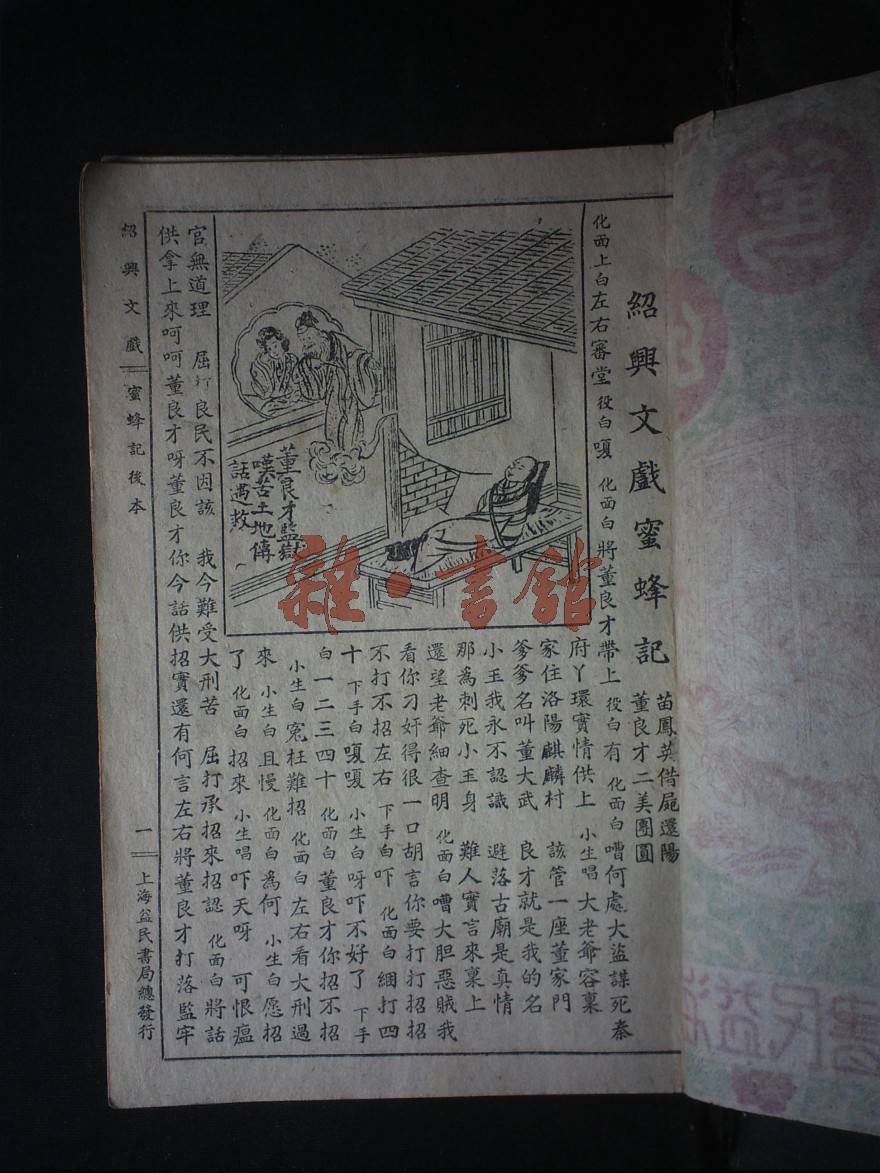 紹興文戲蜜蜂記
苗鳳英借屍還陽
董良才二美團圓
化面上白左右審堂 役白嗄 化面白將董良才帶上 役白有 化面白嘈何處大盜謀死秦
府丫環實情供上 小生唱大老爺容稟
家住洛陽麒麟村 該管一座董家門
爹爹名叫董大武 良才就是我的名
小玉我永不認識 避落古廟是真情
那為刺死小玉身 難人實言來稟上
還望老爺細查明 化面白嘈大胆惡賊我
看你刁奸得很一口胡言你要打打招招
不打不招左右 下手白吓 化面白綑打四
十 下手白嗄嗄 小生白呀吓不好了 下手
白一二三四十 化面白董良才你招不招
小生白冤枉難招 化面白左右看大刑過
來 小生白且慢 化面白為何 小生白愿招
了 化面白招來 小生唱吓天呀 可恨瘟
官無道理 屈打良民不因該 我今難受大刑苦 屈打承招來招認 化面白將話
供拿上來呵呵董良才呀董良才你今話供招實還有何言左右將董良才打落監牢
董良才監獄
嘆苦土地傳
話遇救
紹興文戲 蜜蜂記後本 一 上海益民書局總發行
雜·書館
益民
書